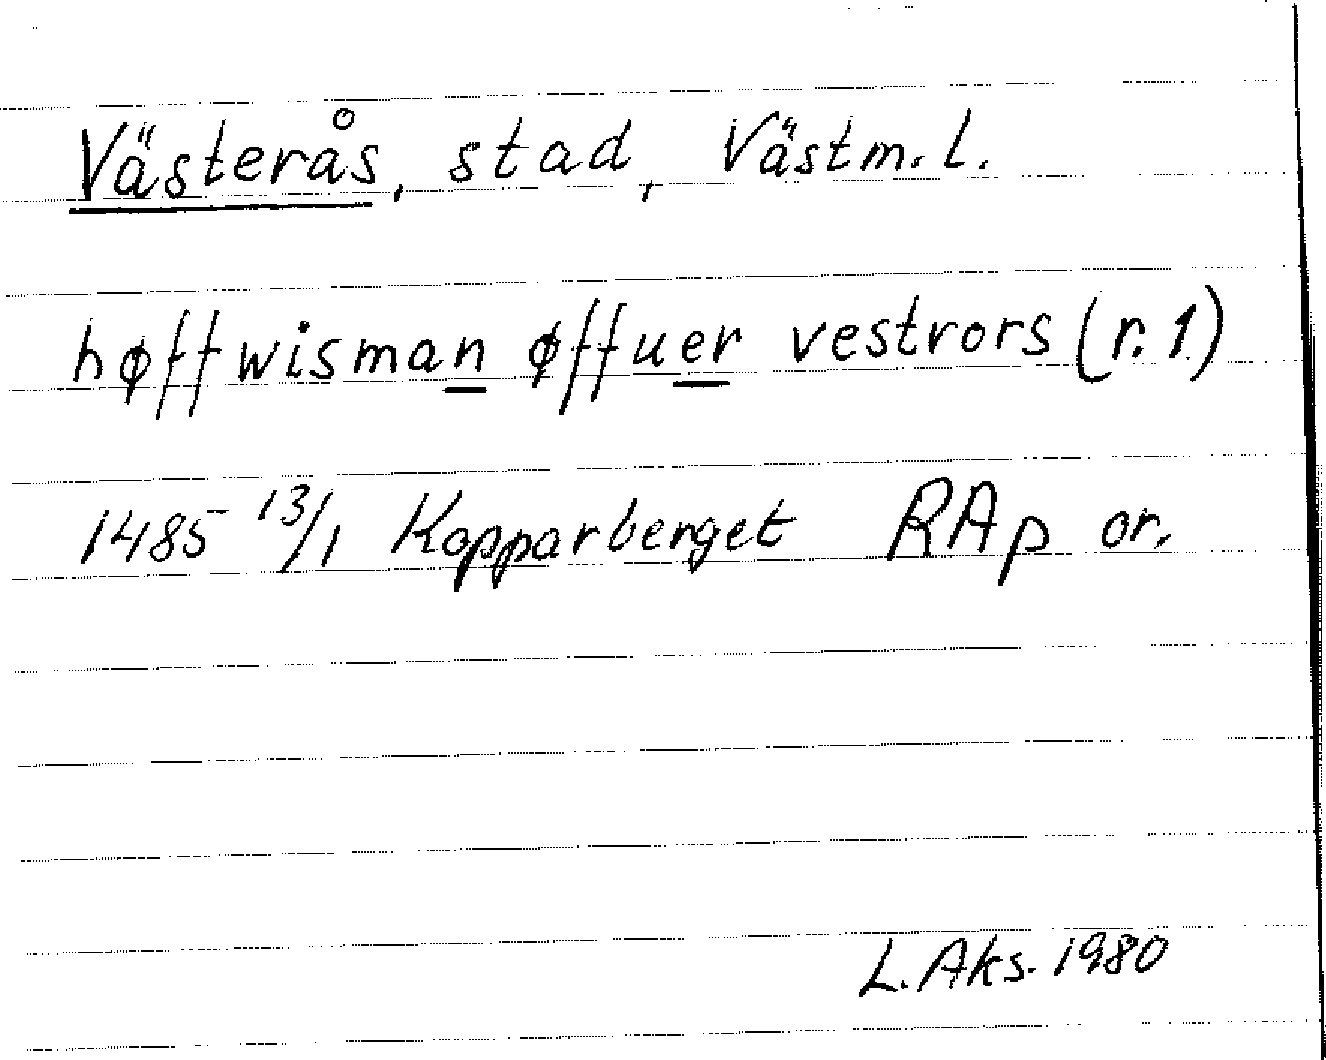 Västerås, stad, Västm. l.
høffwisman øffuer vestrors (r. 1)
1485 13/1 Kopparberget RAp or.
L. Aks. 1980